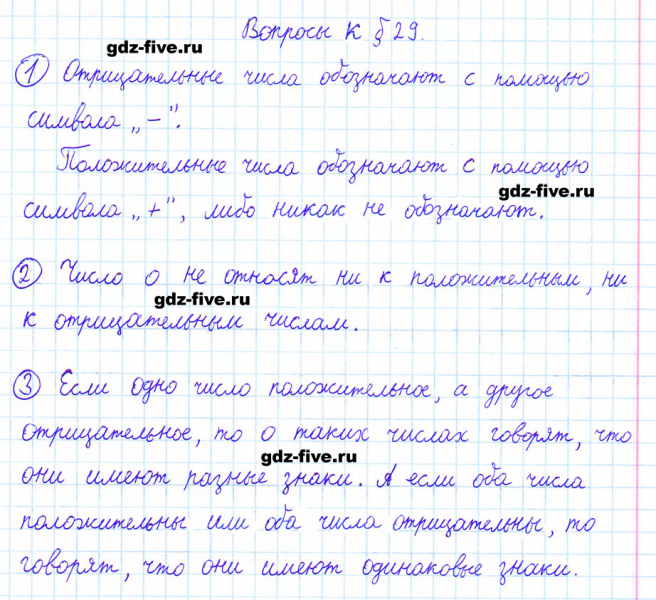 Вопросы к § 29.
gdz-five.ru
① Отрицательные числа обозначают с помощью
символа „−”.
Положительные числа обозначают с помощью
gdz-five.ru
символа „+”, либо никак не обозначают.
② Число 0 не относят ни к положительным, ни
gdz-five.ru
к отрицательным числам.
③ Если одно число положительное, а другое
отрицательное, то о таких числах говорят, что
gdz-five.ru
они имеют разные знаки. А если оба числа
положительны или оба числа отрицательны, то
говорят, что они имеют одинаковые знаки.